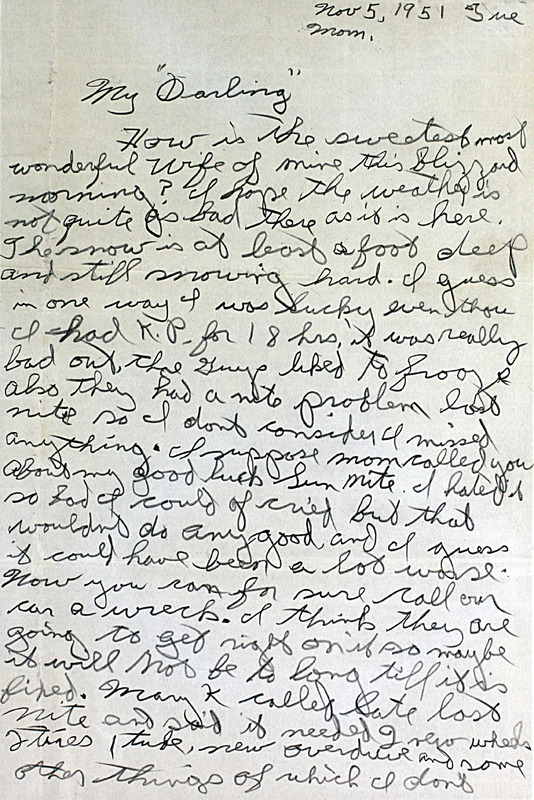 Nov 5, 1951 Tue
Morn.
My "Darling"
How is the sweetest most
wonderful wife of mine this blizzard
morning? I hope the weather is
not quite as bad there as it is here.
The snow is at least a foot deep
and still snowing hard. I guess
in one way I was lucky even thou
I had K.P. for 18 hrs, it was really
bad out, the Guys liked to frooze
also they had a nite problem last
nite so I dont consider I missed
anything. I suppose mom called you
about my good luck Sun nite. I hated it
so bad I could of cried but that
wouldnt do any good and I guess
it could have been a lot worse.
Now you can for sure call our
car a wreck. I think they are
going to get right on it so maybe
it will not be to long till it is
fixed. Mary K called late last
nite and said it needed 2 new wheels
2 tires 1 tube, new overdrive and some
other things of which I dont